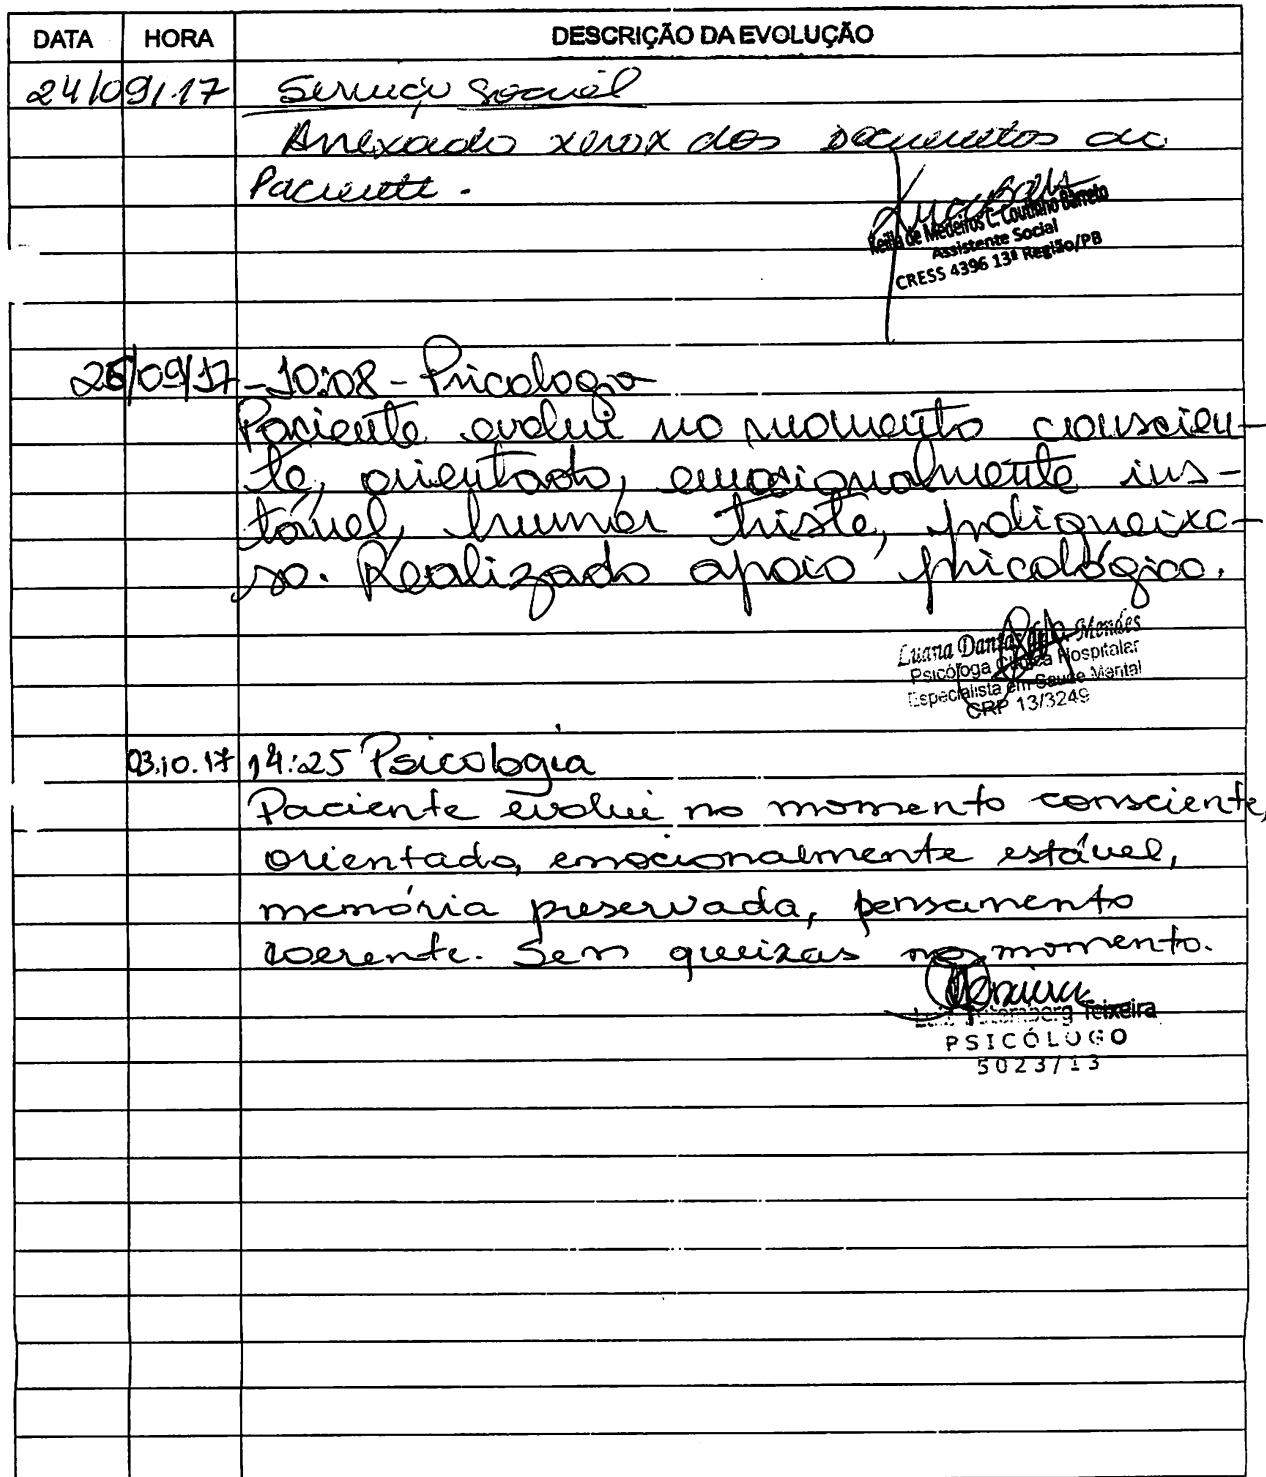 DATA HORA DESCRIÇÃO DA EVOLUÇÃO
24/09/17 Serviço Social
Anexado xerox dos documentos do
Paciente.
Keilla de Medeiros C. Coutinho Barreto
Assistente Social
CRESS 4396 13ª Região/PB
26/09/17 - 10:08 - Psicologia
Paciente evolui no momento conscien-
te, orientado, emocionalmente ins-
tável, humor triste, poliqueixo-
so. Realizado apoio psicológico.
Luana Dantas Mendes
Psicóloga Clínica Hospitalar
Especialista em Saúde Mental
CRP 13/3249
03.10.17 14:25 Psicologia
Paciente evolui no momento consciente,
orientado, emocionalmente estável,
memória preservada, pensamento
coerente. Sem queixas no momento.
Teixeira
PSICÓLOGO
5023/13